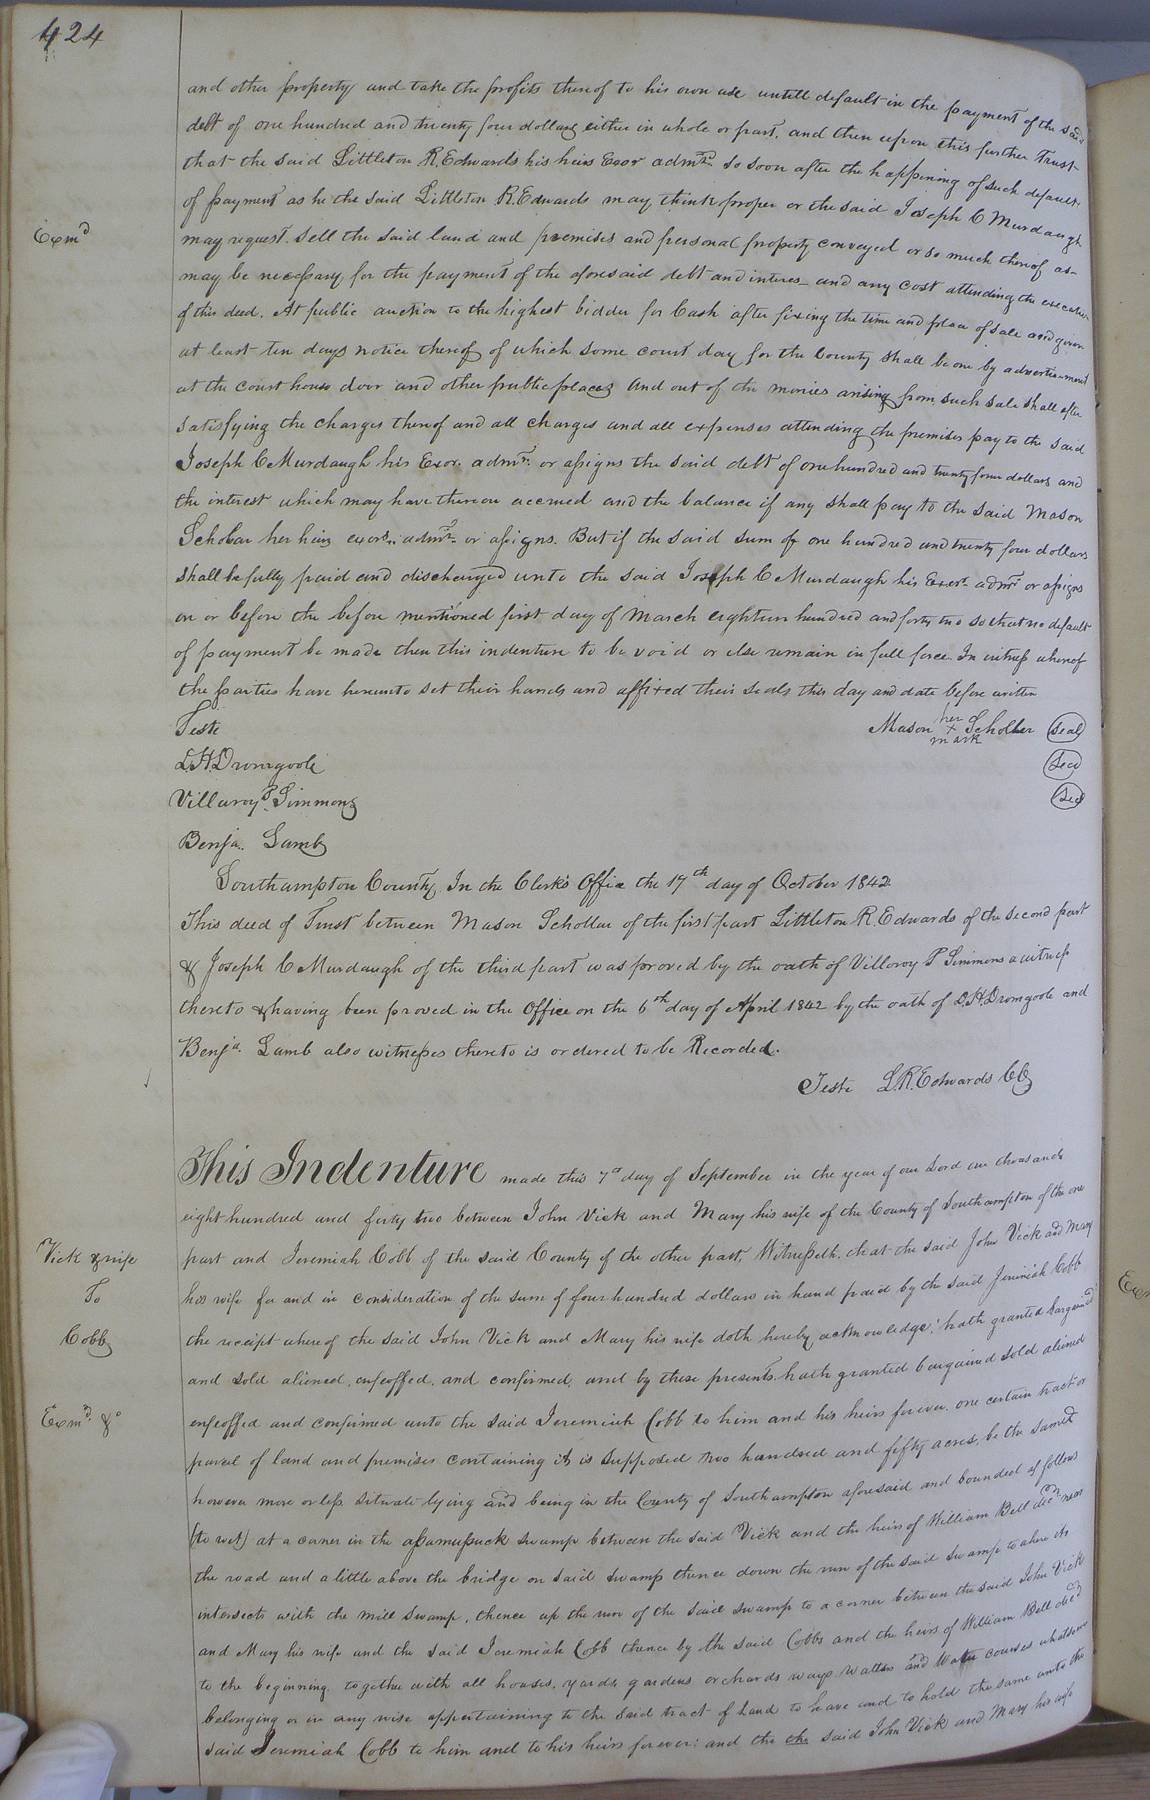 424
and other property and take the profits thereof to his own use untill default in the payment of the said
debt of one hundred and twenty four dollars either in whole or part. and then upon this further Trust
that the said Littleton R. Edwards his heirs Exor admrs. so soon after the happening of such default
of payment as he the said Littleton R. Edwards may think proper or the said Joseph C Murdaugh
Exmd
may request. sell the said land and premises and personal property conveyed or so much thereof as
may be necessary for the payment of the aforesaid debt and interes and any cost attending the execution
of this deed. At public auction to the highest bidder for Cash after fixing the time and place of sale and given
at least ten days notice thereof of which some court day for the County shall be one by advertisement
at the court house door and other public places And out of the monies arising from such sale shall after
satisfying the charges thereof and all charges and all expenses attending the premises pay to the said
Joseph C Murdaugh his Exor. admr. or assigns the said debt of one hundred and twenty four dollars and
the interest which may have thereon accrued and the balance if any shall pay to the said Mason
Scholar her heirs exors. admrs. or assigns. But if the said sum of one hundred and twenty four dollars
shall be fully paid and discharged unto the said Joseph C Murdaugh his Exors. admrs or assigns
on or before the before mentioned first day of March eighteen hundred and forty two so that no default
of payment be made then this indenture to be void or else remain in full force In witness whereof
the parties have hereunto set their hands and affixed their seals this day and date before written
Teste Mason her x mark Scholler seal
L.H. Dromgoole Seal
Villaroy P. Simmons Seal
Benja. Lamb
Southampton County In the Clerk's Office the 17th day of October 1842
This deed of Trust between Mason Schollar of the first part Littleton R. Edwards of the second part
& Joseph C Murdaugh of the third part was proved by the oath of Villoroy P Simmons a witness
thereto & having been proved in the Office on the 6th day of April 1842 by the oath of L.H. Dromgoole and
Benja. Lamb also witnesses thereto is ordered to be Recorded.
Teste L.R. Edwards CC
This Indenture made this 7d day of September in the year of our Lord one thousand
eight hundred and forty two between John Vick and Mary his wife of the County of Southampton of the one
Vick & wife
part and Jeremiah Cobb of the said County of the other part, Witnesseth, that the said John Vick and Mary
To
his wife for and in consideration of the sum of four hundred dollars in hand paid by the said Jeremiah Cobb
Cobb
the receipt whereof the said John Vick and Mary his wife doth hereby acknowledge: hath granted bargained
and sold aliened, enfeoffed, and confirmed, and by these presents, hath granted bargained sold aliened
Exmd. &c
enfeoffed and confirmed unto the said Jeremiah Cobb to him and his heirs forever. one certain tract or
parcel of land and premises containing it is supposed two hundred and fifty acres, be the same
however more or less situate lying and being in the County of Southampton aforesaid and bounded as follows
(to wit) at a corner in the assamussuck swamp between the said Vick and the heirs of William Bell decd. near
the road and a little above the bridge on said swamp thence down the run of the said swamp to where its
intersects with the mill swamp, thence up the run of the said swamp to a corner between the said John Vick
and Mary his wife and the said Jeremiah Cobb thence by the said Cobbs and the heirs of William Bell decd
to the beginning, together with all houses, yards, gardens orchards ways. Watters and Water courses whatsoever
belonging or in any wise appertaining to the said tract of Land to have and to hold the same unto the
said Jeremiah Cobb to him and to his heirs forever: and the the said John Vick and Mary his wife